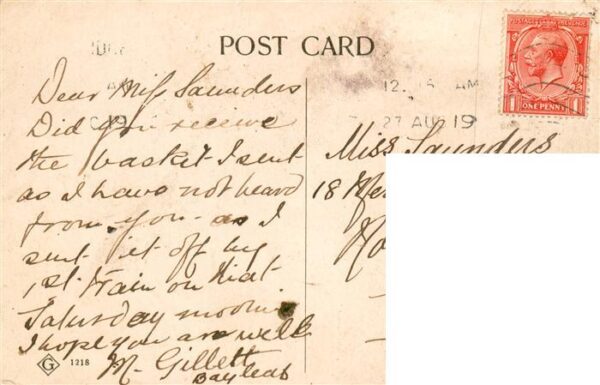 POST CARD
12. AM
27 AUG 19
POSTAGE REVENUE
1 ONE PENNY 1
Dear Miss Saunders
Did you receive
the basket I sent
as I have not heard
from you - as I
sent it off by
1st train on that
Saturday morning
I hope you are well
M. Gillett
Bayleaf
Miss Saunders
18
G 1218